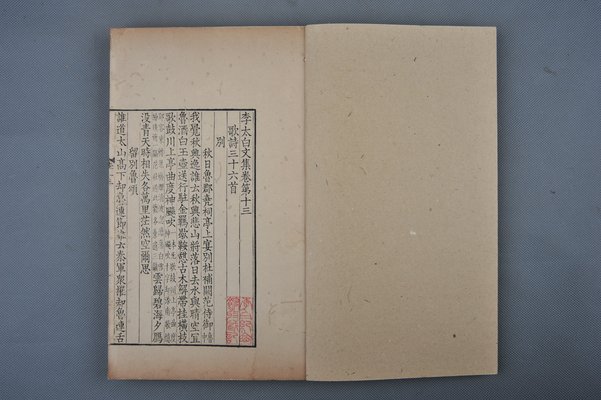 李太白文集卷第十三
歌詩三十六首
別
秋日魯郡堯祠亭上宴別杜補闕范侍御
我覺秋興逸誰云秋興悲山將落日去水與晴空宜
魯酒白玉壺送行駐金羈歇鞍憩古木解帶挂橫枝
歌鼓川上亭曲度神飈吹
雲歸碧海夕鴈
沒青天時相失各萬里茫然空爾思
留別魯頌
誰道太山高下却魯連節誰云秦軍衆摧却魯連舌